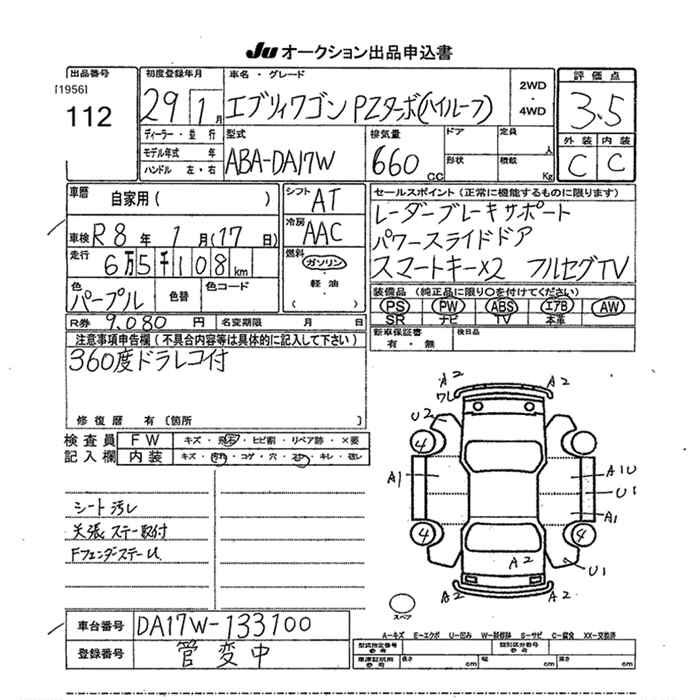 JU オークション出品申込書
出品番号 初度登録年月 車名・グレード 評価点
[1956] 2WD
112 29 1月 エブリィワゴン PZターボ(ハイルーフ) ・ 3.5
4WD
ディーラー・並行 型式 排気量 ドア 定員 人 外装 内装
モデル年式 年 ABA-DA17W 660cc 形状 積載 Kg C C
ハンドル 左・右
車歴 自家用( ) シフト AT セールスポイント(正常に機能するものに限ります)
レーダーブレーキサポート
車検 R8年 1月(17日) 冷房 AAC パワースライドドア
走行 6万5千108km 燃料 ガソリン スマートキー×2 フルセグTV
・
色 色替 色コード 軽油 装備品(純正品に限り○を付けてください)
パープル ・ PS PW ABS エアB AW
( ) SR ナビ TV 本革
R券 9,080円 名変期限 月 日 新車保証書 後日品
有・無
注意事項申告欄(不具合内容等は具体的に記入して下さい)
360度ドラレコ付
修復歴 有(箇所 )
検査員 FW キズ・飛石・ヒビ割・リペア跡・×要
記入欄 内装 キズ・汚れ・コゲ・穴・スレ・キレ・破レ
A2 A2
ワレ
U2
4
A1 A1U
U1
A1
4 4
A2 U1
A2 A2
シート汚レ
天張 ステー取付
FフェンダステーU
スペア
車台番号 DA17W-133100
A−キズ E−エクボ U−凹み W−補修跡 S−サビ C−腐食 XX−交換済
登録番号 管変中 型式指定番号 類別区分番号
長さ cm 幅 cm 高さ cm